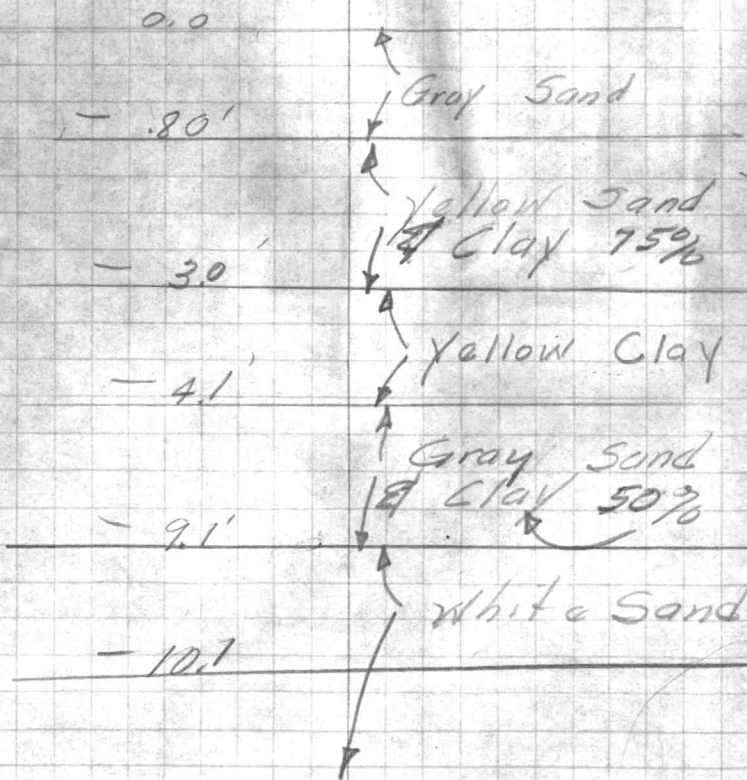 0.0
Gray Sand
- .80'
Yellow Sand
& Clay 75%
- 3.0'
Yellow Clay
- 4.1'
Gray Sand
& Clay 50%
- 9.1'
White Sand
- 10.7